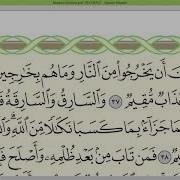 أَن يَخْرُجُوا۟ مِنَ ٱلنَّارِ وَمَا هُم بِخَٰرِجِينَ
عَذَابٌ مُّقِيمٌ ٣٧ وَٱلسَّارِقُ وَٱلسَّارِقَةُ
جَزَآءًۢ بِمَا كَسَبَا نَكَٰلًا مِّنَ ٱللَّهِ وَٱللَّهُ
٣٨ فَمَن تَابَ مِنۢ بَعْدِ ظُلْمِهِۦ وَأَصْلَحَ